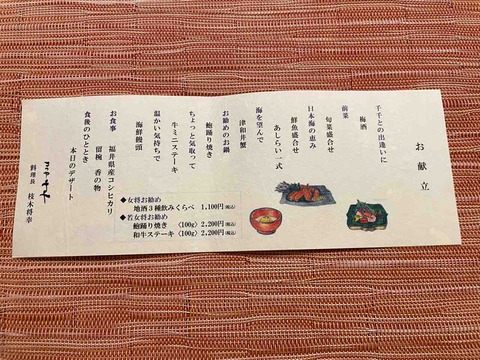 お献立
千千との出逢いに
梅酒
前菜
旬菜盛合せ
日本海の恵み
鮮魚盛合せ
あしらい一式
海を望んで
津和井蟹
お勧めのお鍋
鮑踊り焼き
ちょっと気取って
牛ミニステーキ
温かい気持ちで
海鮮饅頭
お食事
福井県産コシヒカリ
留椀 香の物
食後のひととき
本日のデザート
料理長 枝木将幸
◆女将お勧め
地酒3種飲みくらべ 1,100円(税込)
◆若女将お勧め
鮑踊り焼き 〈100g〉 2,200円(税込)
和牛ステーキ 〈100g〉 2,200円(税込)